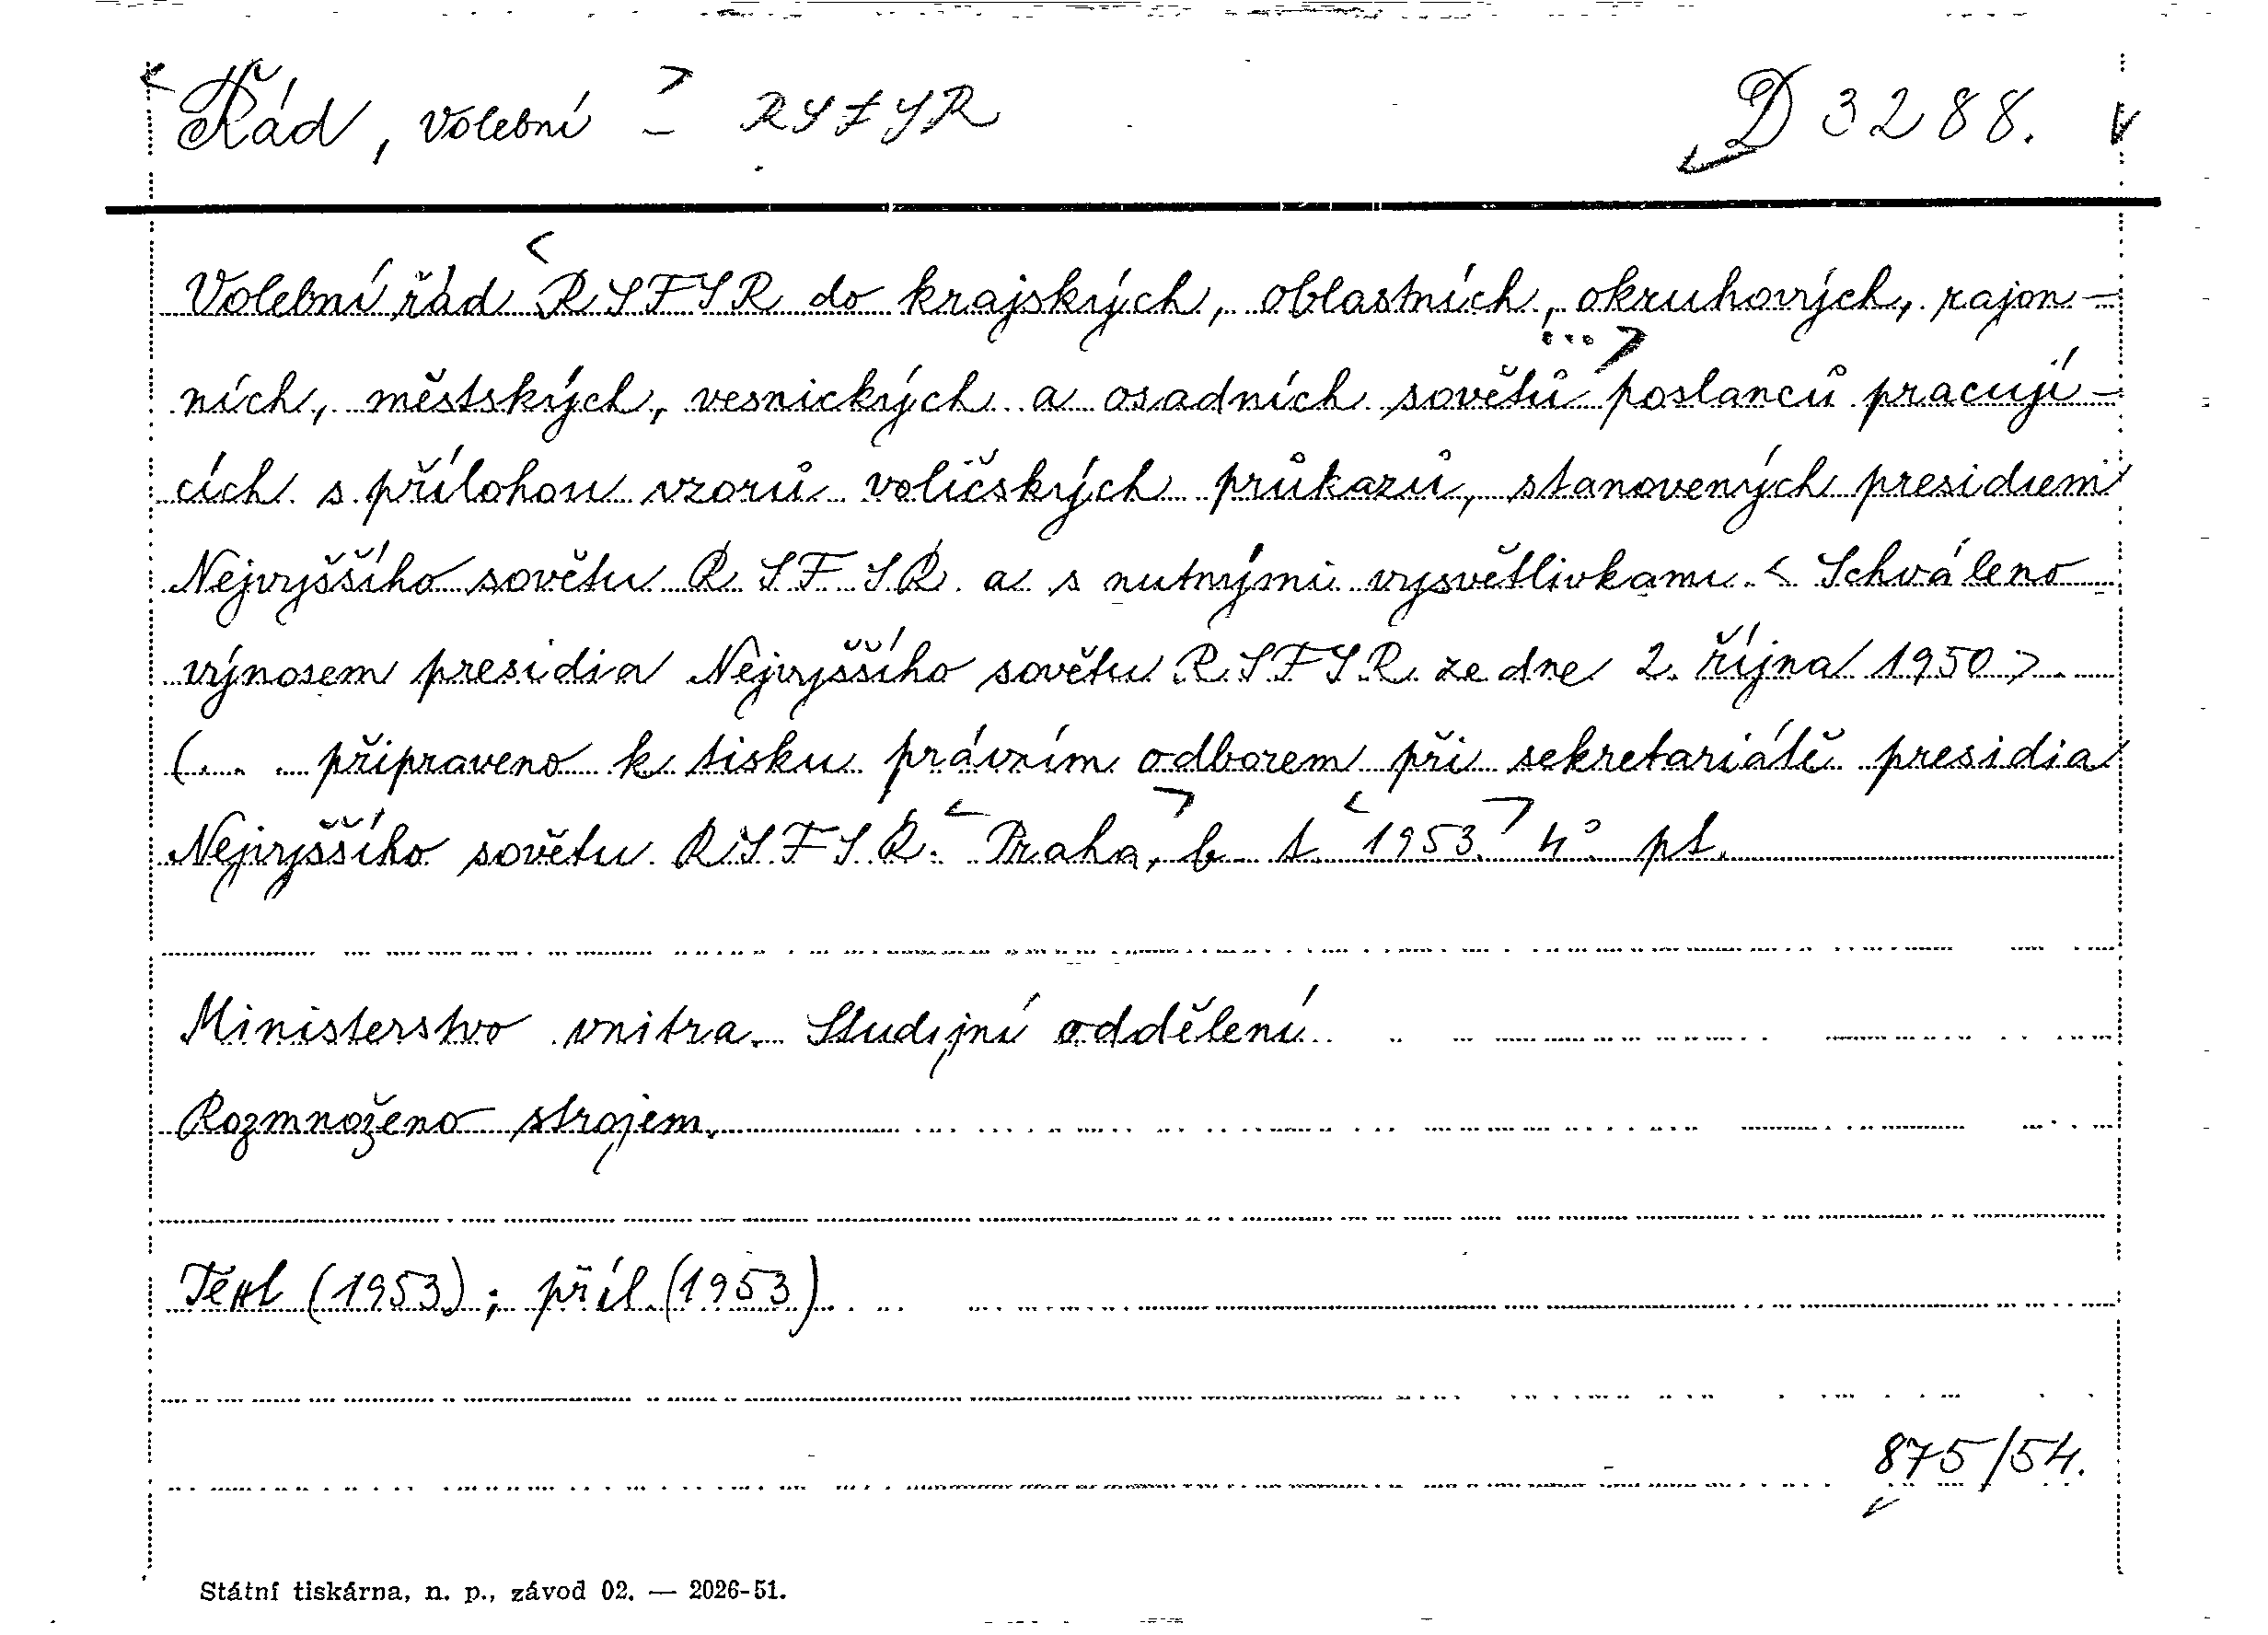 Řád, volební - RSFSR D 3288.
Volební řád RSFSR do krajských, oblastních, okruhových, rajon-
ních, městských, vesnických a osadních sovětů poslanců pracují-
cích s přílohou vzorů voličských průkazů, stanovených presidiem
Nejvyššího sovětu RSFSR a s nutnými vysvětlivkami. < Schváleno
výnosem presidia Nejvyššího sovětu RSFSR ze dne 2. října 1950 >.
(... připraveno k tisku právním odborem při sekretariátě presidia
Nejvyššího sovětu RSFSR. Praha, b. t. 1953. 4° pt.
Ministerstvo vnitra. Studijní oddělení.
Rozmnoženo strojem.
Text (1953); příl. (1953).
875/54.
Státní tiskárna, n. p., závod 02. — 2026-51.